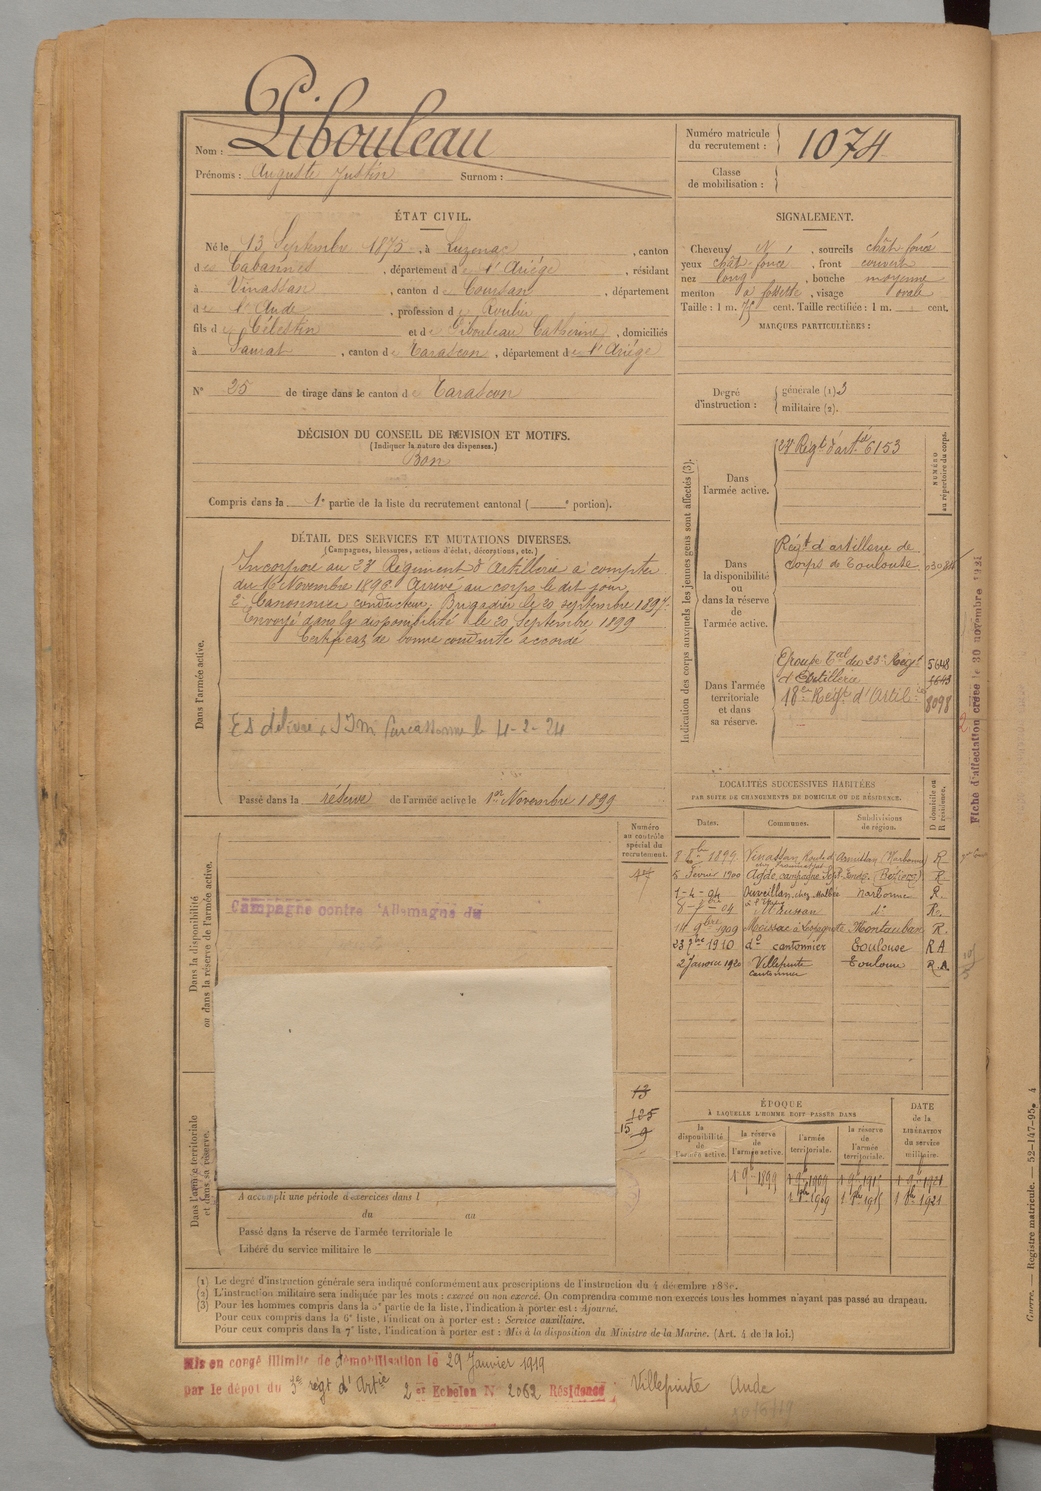 Nom : Pibouleau
Prénoms : Auguste Justin Surnom :
Numéro matricule du recrutement : 1074
Classe de mobilisation :
ÉTAT CIVIL.
Né le 13 Septembre 1875, à Luzenac, canton
de Cabannes, département de l'Ariège, résidant
à Vinassan, canton de Coursan, département
de l'Aude, profession de
fils de Célestin et de Pibouleau Catherine, domiciliés
à Saurat, canton de Tarascon, département de l'Ariège
N° 25 de tirage dans le canton de Tarascon
SIGNALEMENT.
Cheveux N, sourcils chât. foncé
yeux chât. foncé, front couvert
nez long, bouche moyenne
menton à fossette, visage ovale
Taille : 1 m. 75 cent. Taille rectifiée : 1 m. cent.
MARQUES PARTICULIÈRES :
Degré d'instruction : générale (1) 3
militaire (2).
DÉCISION DU CONSEIL DE REVISION ET MOTIFS.
(Indiquer la nature des dispenses.)
Bon
Compris dans la 1e partie de la liste du recrutement cantonal ( e portion).
DÉTAIL DES SERVICES ET MUTATIONS DIVERSES.
(Campagnes, blessures, actions d'éclat, décorations, etc.)
Dans l'armée active.
Incorporé au 23e Régiment d'Artillerie à compter
du 16 Novembre 1896. Arrivé au corps le dit jour
2e Canonnier conducteur. Brigadier le 20 septembre 1897.
Envoyé dans la disponibilité le 20 Septembre 1899
Certificat de bonne conduite accordé
Es délivré Carcassonne le 4-2-24
Passé dans la réserve de l'armée active le 1er Novembre 1899
Indication des corps auxquels les jeunes gens sont affectés (3).
NUMÉRO au répertoire du corps.
Dans l'armée active.
23e Régt d'artie 6153
Dans la disponibilité ou dans la réserve de l'armée active.
Regt d'artillerie de
corps de Toulouse
Dans l'armée territoriale et dans sa réserve.
Groupe Tal du 23e Régt 5648
d'Artillerie
18e Régt d'Artilie 8098
Fiche d'affectation créée le 30 novembre 1921
LOCALITÉS SUCCESSIVES HABITÉES
PAR SUITE DE CHANGEMENTS DE DOMICILE OU DE RÉSIDENCE.
Dates. Communes. Subdivisions de région. D domicile ou R résidence.
8 bre 1899 Vinassan, route d'Armissan (Narbonne) R
5 Février 1900 Agde, campagne (Béziers) R
1-4-04 Ouveillan, chez Narbonne R.
8-7bre-04 do R.
14 9bre 1909 Moissac à Lespagnette Montauban R.
23 bre 1910 do cantonnier Toulouse RA
2 Janvier 1920 Villepinte cantonnier Toulouse R.A
Dans la disponibilité ou dans la réserve de l'armée active.
Numéro au contrôle spécial du recrutement.
Campagne contre l'Allemagne du
Dans l'armée territoriale et dans sa réserve.
13
125
15 9
A accompli une période d'exercices dans l
du au
Passé dans la réserve de l'armée territoriale le
Libéré du service militaire le
ÉPOQUE
À LAQUELLE L'HOMME DOIT PASSER DANS
la disponibilité de l'armée active. la réserve de l'armée active. l'armée territoriale. la réserve de l'armée territoriale.
DATE de la LIBÉRATION du service militaire.
1 9b 1899 1 9b 1909 1 9b 1915 1 9b 1921
1 8bre 1909 1 8bre 1915 1 8bre 1921
(1) Le degré d'instruction générale sera indiqué conformément aux prescriptions de l'instruction du 4 décembre 1889.
(2) L'instruction militaire sera indiquée par les mots : exercé ou non exercé. On comprendra comme non exercés tous les hommes n'ayant pas passé au drapeau.
(3) Pour les hommes compris dans la 5e partie de la liste, l'indication à porter est : Ajourné.
Pour ceux compris dans la 6e liste, l'indication à porter est : Service auxiliaire.
Pour ceux compris dans la 7e liste, l'indication à porter est : Mis à la disposition du Ministre de la Marine. (Art. 4 de la loi.)
Mis en congé illimité de démobilisation le 29 Janvier 1919
par le dépôt du 3e régt d'Artie 2er Echelon N 2062 Résidence Villepinte Aude
Guerre. — Registre matricule. — 52-147-95. 4